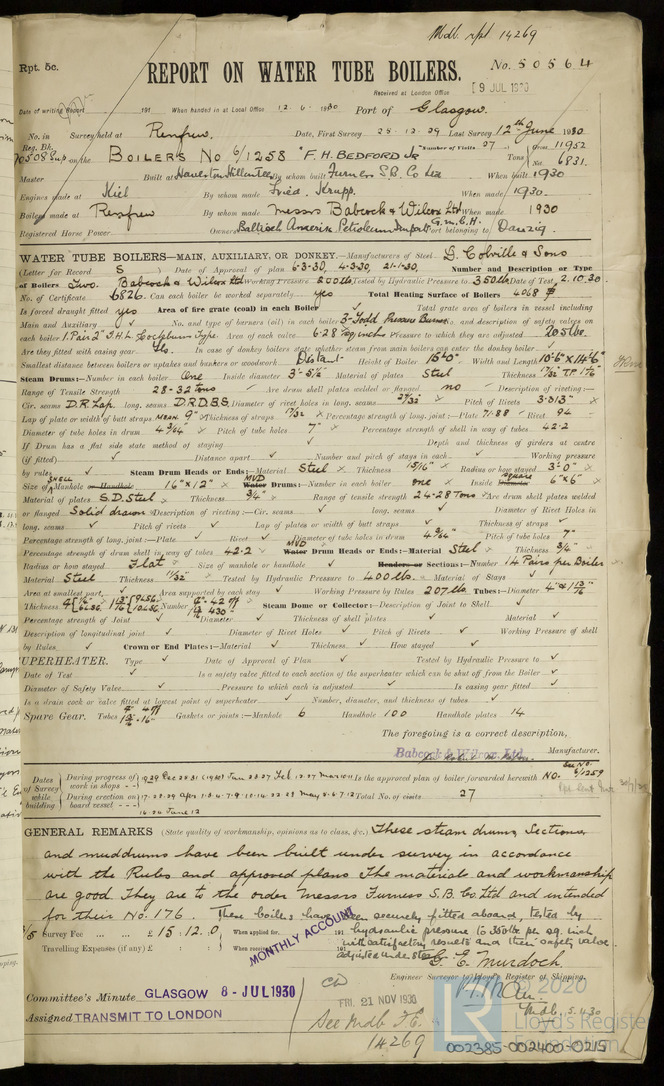 Mdb. rpt. 14269
Rpt. 5c.
REPORT ON WATER TUBE BOILERS.
No. 50564
Received at London Office 9 JUL 1930
Date of writing Report 191 When handed in at Local Office 12.6.1930 Port of Glasgow.
No. in Survey held at Renfrew. Date, First Survey 28-12-29 Last Survey 12th June 1930
Reg. Bk. Number of Visits 27 Gross 11952
70508 Sup on the BOILERS No 6/1258 "F. H. BEDFORD Jr Tons Net 6831.
Master Built at Haverton Hill on Tees By whom built Furness S.B. Co Ltd When built 1930
Engines made at Kiel By whom made Fried. Krupp. When made 1930.
Boilers made at Renfrew By whom made Messrs Babcock & Wilcox Ltd When made 1930
Registered Horse Power Owners Baltisch Amerik Petroleum Import G.m.b.H. Port belonging to Danzig.
WATER TUBE BOILERS—MAIN, AUXILIARY, OR DONKEY.—Manufacturers of Steel D. Colville & Sons
(Letter for Record S) Date of Approval of plan 6-3-30, 4-3-30, 21-1-30, Number and Description or Type
of Boilers Two. Babcock & Wilcox Ltd Working Pressure 200 lb Tested by Hydraulic Pressure to 350 lb Date of Test 2.10.30
No. of Certificate 6826. Can each boiler be worked separately yes Total Heating Surface of Boilers 4068
Is forced draught fitted yes Area of fire grate (coal) in each Boiler ✓ Total grate area of boilers in vessel including
Main and Auxiliary ✓ No. and type of burners (oil) in each boiler 3-Todd Pressure Burners No. and description of safety valves on
each boiler 1. Pair 2" Cockburns Type. Area of each valve 6.28 sq inches Pressure to which they are adjusted 205 lbs.
Are they fitted with easing gear Yes. In case of donkey boilers state whether steam from main boilers can enter the donkey boiler ✓
Smallest distance between boilers or uptakes and bunkers or woodwork Distant Height of Boiler 15'0" Width and Length 10'-6" x 14'-6"
Steam Drums:—Number in each boiler One Inside diameter 3'-5 1/2" Material of plates Steel Thickness
Range of Tensile Strength 28-32 tons Are drum shell plates welded or flanged no Description of riveting:—
Cir. seams D.R. Lap. long. seams D.R.D.B.S. Diameter of rivet holes in long. seams 27/32 Pitch of Rivets 3.313"
Lap of plate or width of butt straps 9" Thickness of straps 17/32 Percentage strength of long. joint:—Plate 71.88 Rivet 94
Diameter of tube holes in drum Pitch of tube holes 7" Percentage strength of shell in way of tubes 42.2
If Drum has a flat side state method of staying ✓ Depth and thickness of girders at centre
(if fitted) ✓ Distance apart ✓ Number and pitch of stays in each ✓ Working pressure
by rules ✓ Steam Drum Heads or Ends:—Material Steel Thickness 15/16" Radius or how stayed 3'-0"
Size of Manhole or Handhole 16" x 12" MUD Water Drums:—Number in each boiler one Inside square Diameter 6" x 6"
Material of plates S.D. Steel Thickness 3/4" Range of tensile strength 24-28 Tons Are drum shell plates welded
or flanged Solid drawn Description of riveting:—Cir. seams ✓ long. seams ✓ Diameter of Rivet Holes in
long. seams ✓ Pitch of rivets ✓ Lap of plates or width of butt straps ✓ Thickness of straps ✓
Percentage strength of long. joint:—Plate ✓ Rivet ✓ Diameter of tube holes in drum Pitch of tube holes 7"
Percentage strength of drum shell in way of tubes 42.2 MUD Water Drum Heads or Ends:—Material Steel Thickness 3/4"
Radius or how stayed Flat Size of manhole or handhole ✓ Headers or Sections:—Number 14 Pairs per Boiler
Material Steel Thickness 11/32" Tested by Hydraulic Pressure to 400 lbs. Material of Stays ✓
Area at smallest part ✓ Area supported by each stay ✓ Working Pressure by Rules 207 lbs. Tubes:—Diameter
Thickness Number Steam Dome or Collector:—Description of Joint to Shell ✓
Percentage strength of Joint ✓ Diameter ✓ Thickness of shell plates ✓ Material ✓
Description of longitudinal joint ✓ Diameter of Rivet Holes ✓ Pitch of Rivets ✓ Working Pressure of shell
by Rules ✓ Crown or End Plates:—Material ✓ Thickness ✓ How stayed ✓
UPERHEATER, Type ✓ Date of Approval of Plan ✓ Tested by Hydraulic Pressure to ✓
Date of Test ✓ Is a safety valve fitted to each section of the superheater which can be shut off from the Boiler ✓
Diameter of Safety Valve ✓ Pressure to which each is adjusted ✓ Is easing gear fitted ✓
Is a drain cock or valve fitted at lowest point of superheater ✓ Number, diameter, and thickness of tubes ✓
Spare Gear. Tubes Gaskets or joints:—Manhole 6 Handhole 100 Handhole plates 14
The foregoing is a correct description,
Babcock & Wilcox Ltd. Manufacturer.
Dates of Survey while building
During progress of work in shops
During erection on board vessel
Is the approved plan of boiler forwarded herewith No. See No. 6/1259
Total No. of visits 27
16-24 June 12
GENERAL REMARKS (State quality of workmanship, opinions as to class, &c.) These steam drums, Sections
and muddrums have been built under survey in accordance
with the Rules and approved plans The materials and workmanship
are good They are to the order Messrs Furness S.B. Co. Ltd and intended
for their No. 176. These boilers have been securely fitted aboard, tested by
Survey Fee £ 15.12.0 When applied for, 191 hydraulic pressure to 350 lbs per sq. inch
MONTHLY ACCOUNT
with satisfactory results and their safety valve
Travelling Expenses (if any) £ When received, 191 adjusted under steam
G. E. Murdoch
Engineer Surveyor to Lloyd's Register of Shipping.
Committee's Minute GLASGOW 8 - JUL 1930
FRI. 21 NOV 1930
Mdb. 5.11.30
Assigned TRANSMIT TO LONDON
See Mdb F.E.
14269
© 2020
Lloyd's Register
Foundation
002385-002400-0215